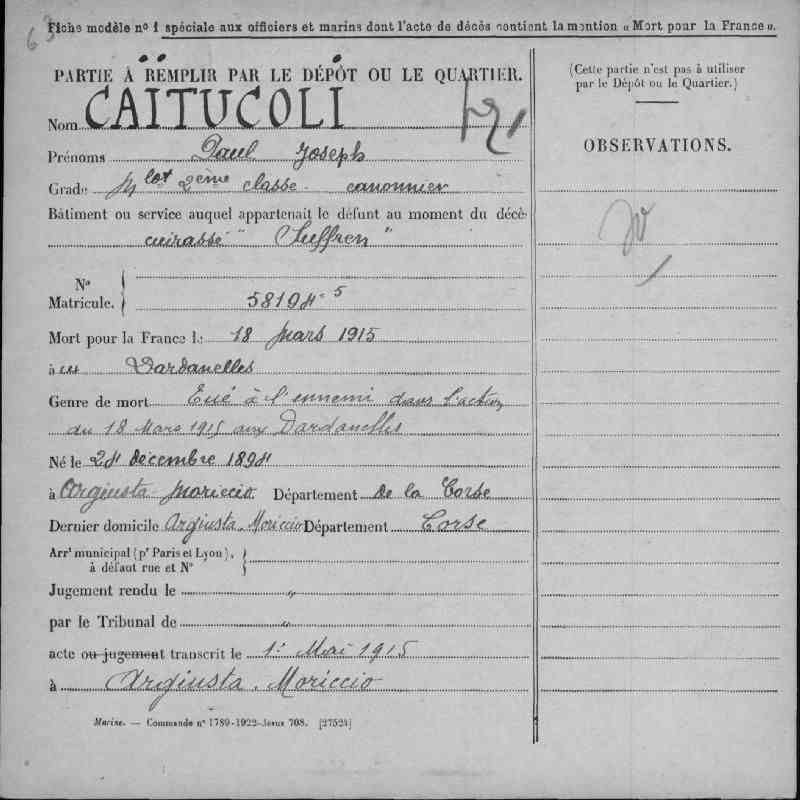 63
Fiche modèle nº 1 spéciale aux officiers et marins dont l'acte de décès contient la mention « Mort pour la France ».
PARTIE À REMPLIR PAR LE DÉPÔT OU LE QUARTIER.
Nom CAITUCOLI
Prénoms Paul Joseph
Grade Mlot 2ème classe canonnier
Bâtiment ou service auquel appartenait le défunt au moment du décè
cuirassé "Suffren"
Nº
Matricule. 58194 - 5
Mort pour la France le 18 Mars 1915
à ux Dardanelles
Genre de mort Tué à l'ennemi dans l'action
du 18 Mars 1915 aux Dardanelles
Né le 24 décembre 1894
à Argiusta-Moriccio Département de la Corse
Dernier domicile Argiusta-Moriccio Département Corse
Arrt municipal (pr Paris et Lyon),
à défaut rue et Nº
Jugement rendu le "
par le Tribunal de "
acte ou jugement transcrit le 1er Mai 1915
à Argiusta-Moriccio
Marine. — Commande nº 1789-1922-Jesus 708. [27524]
(Cette partie n'est pas à utiliser
par le Dépôt ou le Quartier.)
OBSERVATIONS.